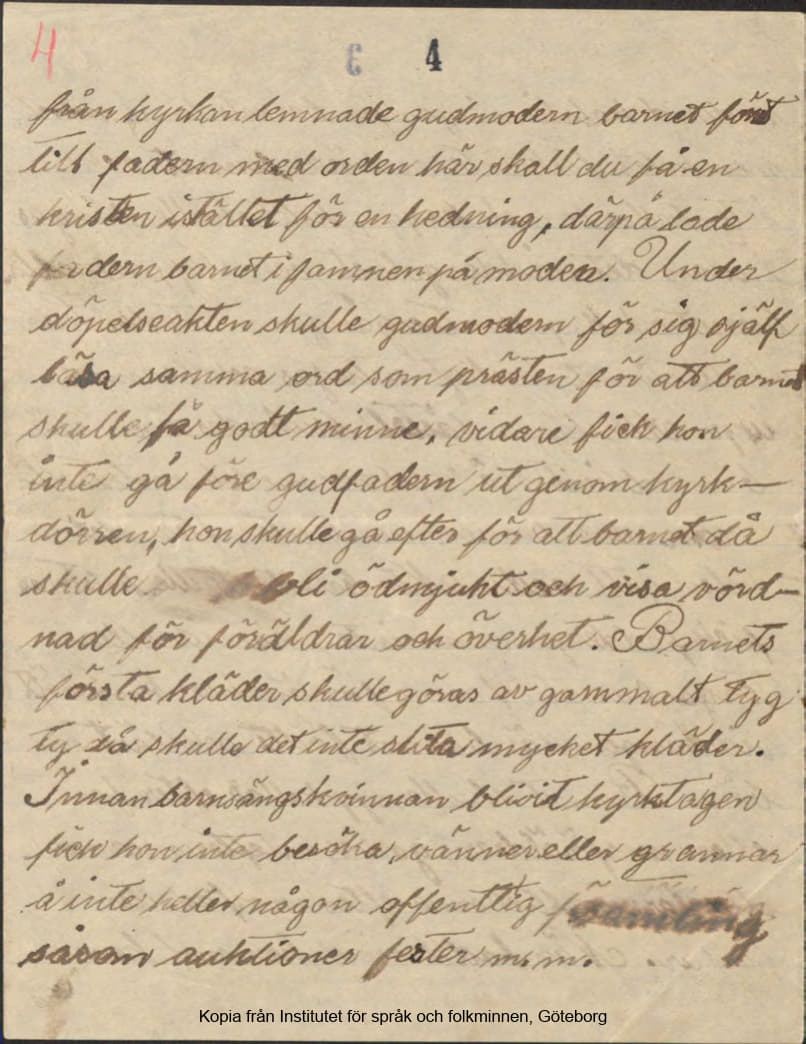 4
3 4
från kyrkan lemnade gudmodern barnet först
till fadern med orden här skall du få en
kristen istället för en hedning, därpå lade
fadern barnet i famnen på modern. Under
döpelseakten skulle gudmodern för sig själf
läsa samma ord som prästen för att barnet
skulle få godt minne, vidare fick hon
inte gå före gudfadern ut genom kyrk-
dörren, hon skulle gå efter för att barnet då
skulle bli ödmjukt och visa vörd-
nad för föräldrar och överhet. Barnets
första kläder skulle göras av gammalt tyg
ty då skulle det inte slita mycket kläder.
Innan barnsängskvinnan blivit kyrktagen
fick hon inte besöka vänner eller grannar
å inte heller någon offentlig församling
såsom auktioner fester m.m.
Kopia från Institutet för språk och folkminnen, Göteborg